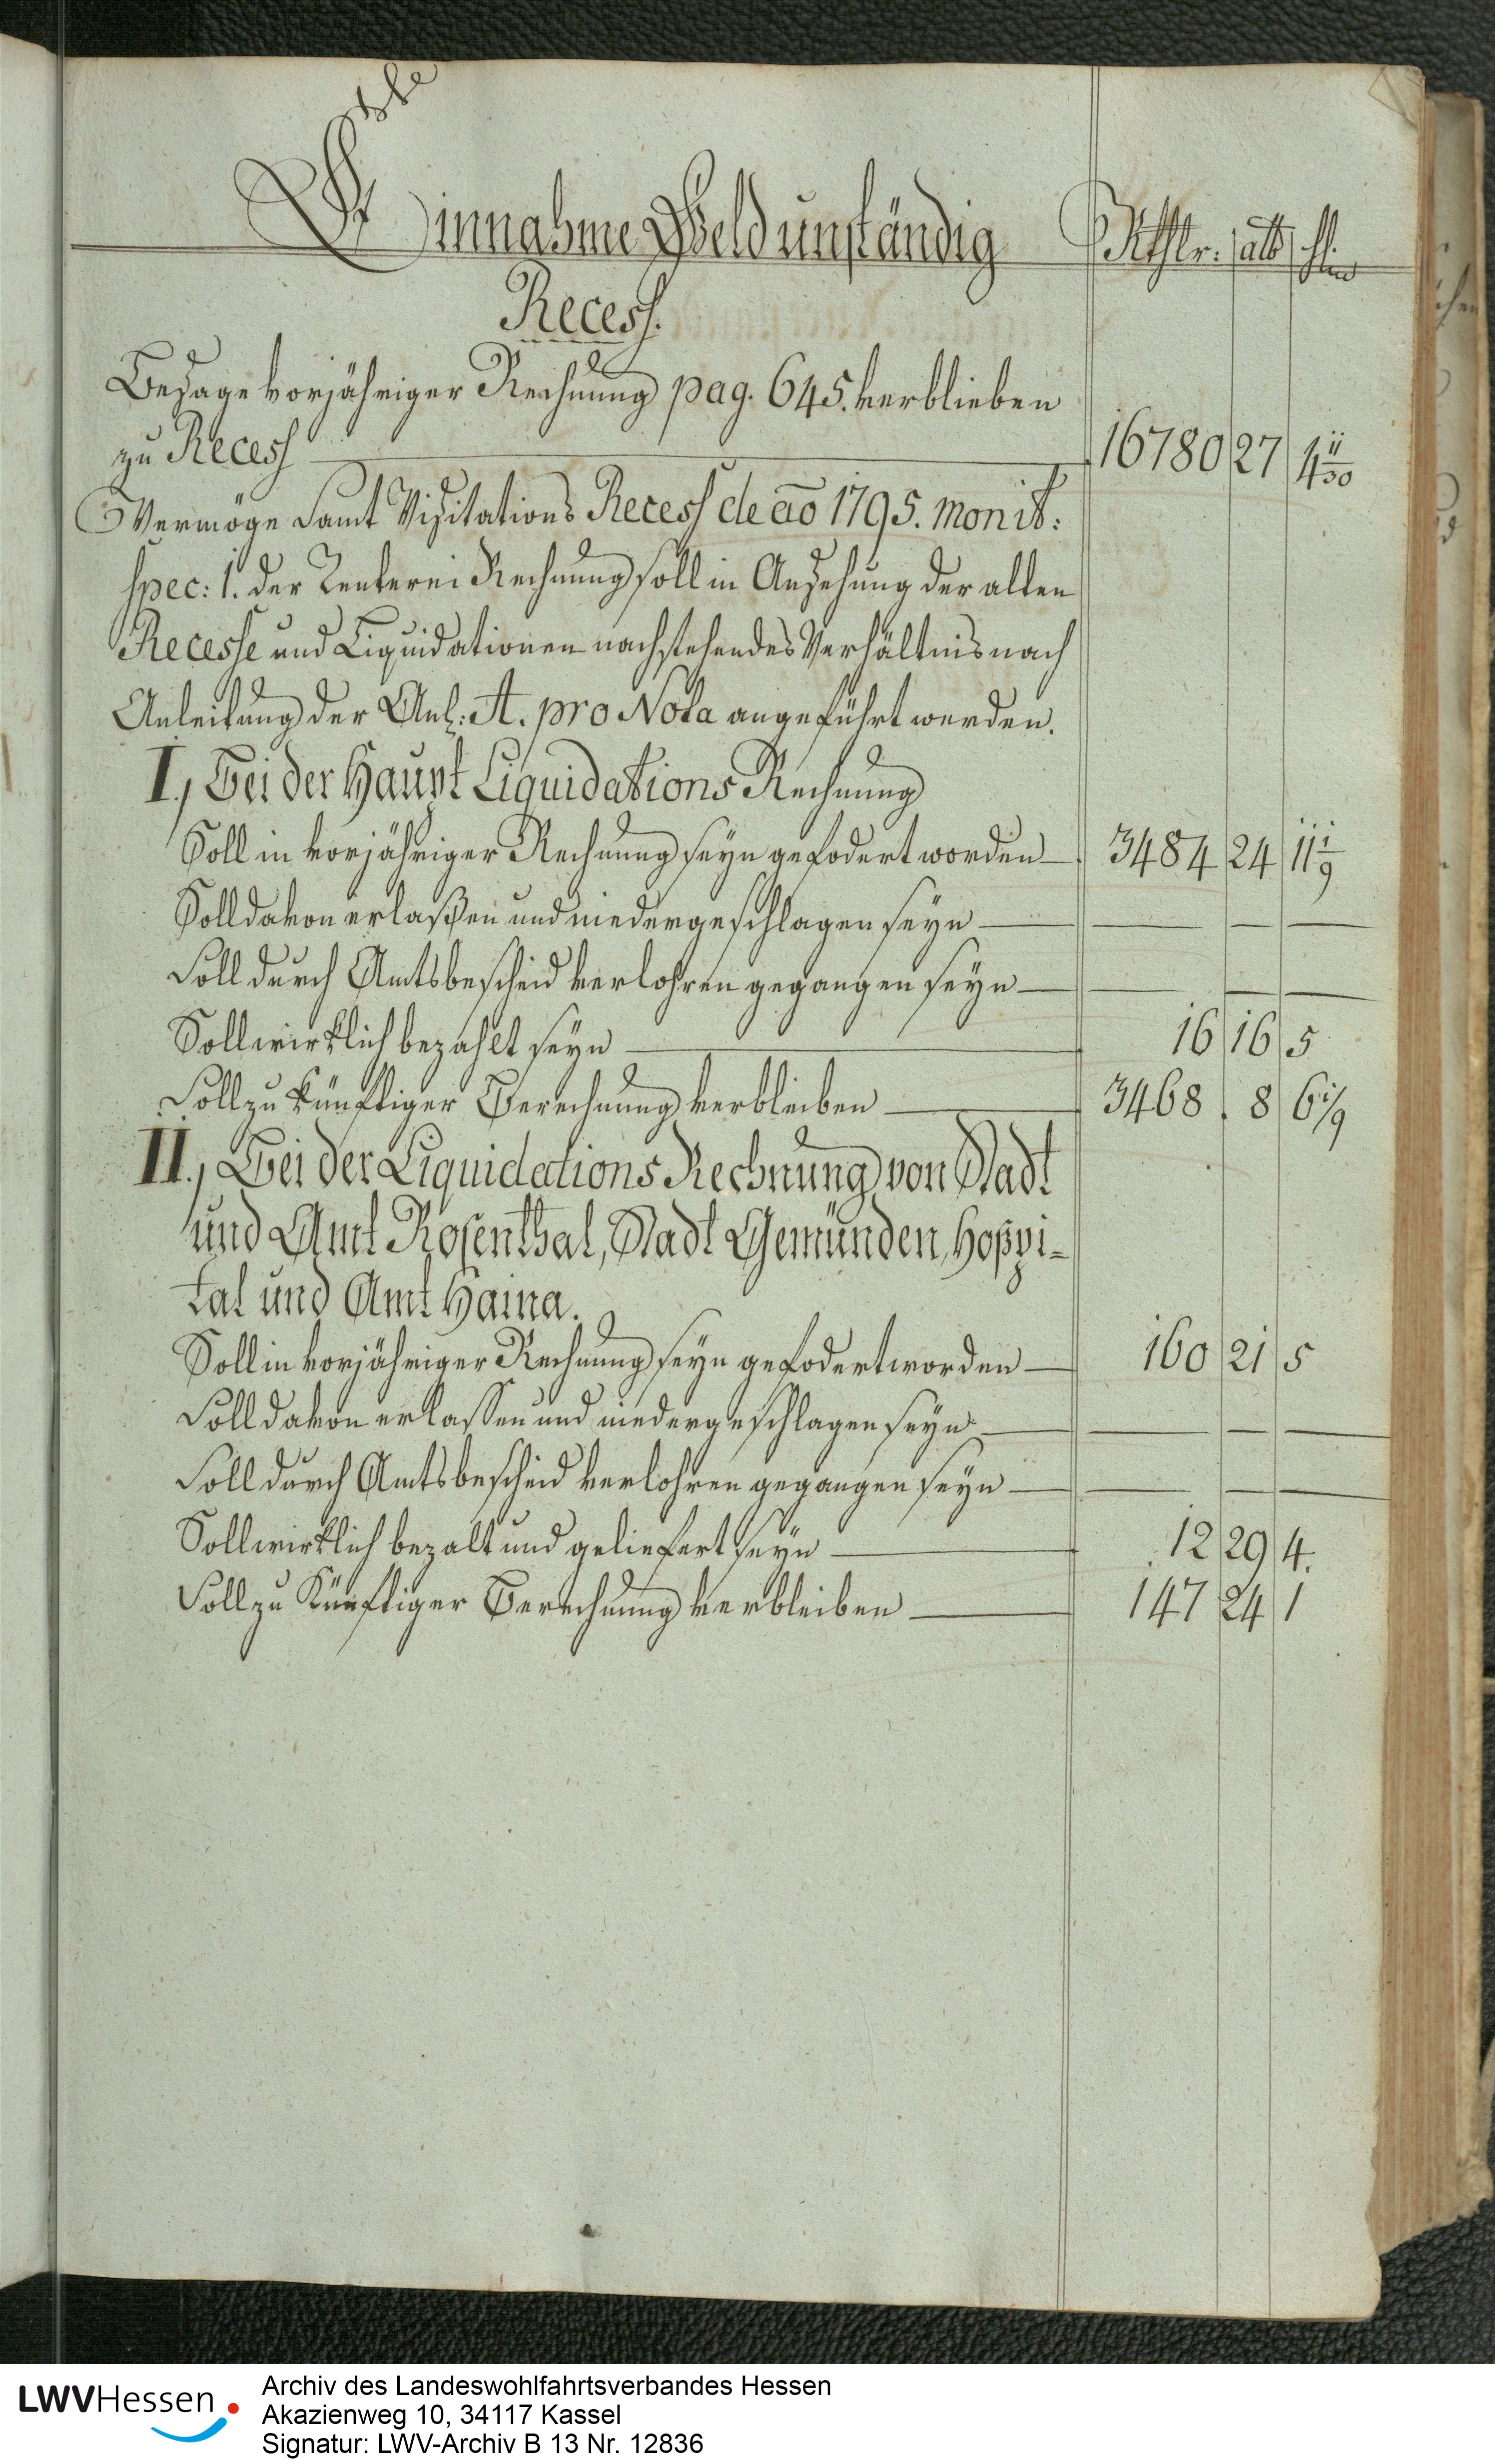 Einnahme Geld unständig Rthlr. alb hl.
Recess.
Besage vorjähriger Rechnung pag. 645. verblieben
zu Recess 16780 27 4 11/30
Vermöge Samt Visitations Recess de ao 1795. monit:
spec: 1. der Renterei Rechnung soll in Ansehung der alten
Recesse und Liquidationen nachstehendes Verhältnis nach
Anleitung der Anl: A. pro Nota angeführt werden.
I., Bei der Haupt Liquidations Rechnung
Soll in vorjähriger Rechnung seyn gefodert worden 3484 24 11 1/9
Soll davon erlaßen und niedergeschlagen seyn — — —
Soll durch Amtsbescheid verlohren gegangen seyn — — —
Soll wirklich bezahlt seyn 16 16 5
Soll zu künftiger Berechnung verbleiben 3468. 8 6 1/9
II., Bei der Liquidations Rechnung von Stadt
und Amt Rosenthal, Stadt Gemünden, Hospi-
tal und Amt Haina.
Soll in vorjähriger Rechnung seyn gefodert worden 160 21 5
Soll davon erlassen und niedergeschlagen seyn — — —
Soll durch Amtsbescheid verlohren gegangen seyn — — —
Soll wirklich bezalt und geliefert seyn 12 29 4.
Soll zu Künftiger Berechnung verbleiben 147 24 1
LWVHessen
Archiv des Landeswohlfahrtsverbandes Hessen
Akazienweg 10, 34117 Kassel
Signatur: LWV-Archiv B 13 Nr. 12836